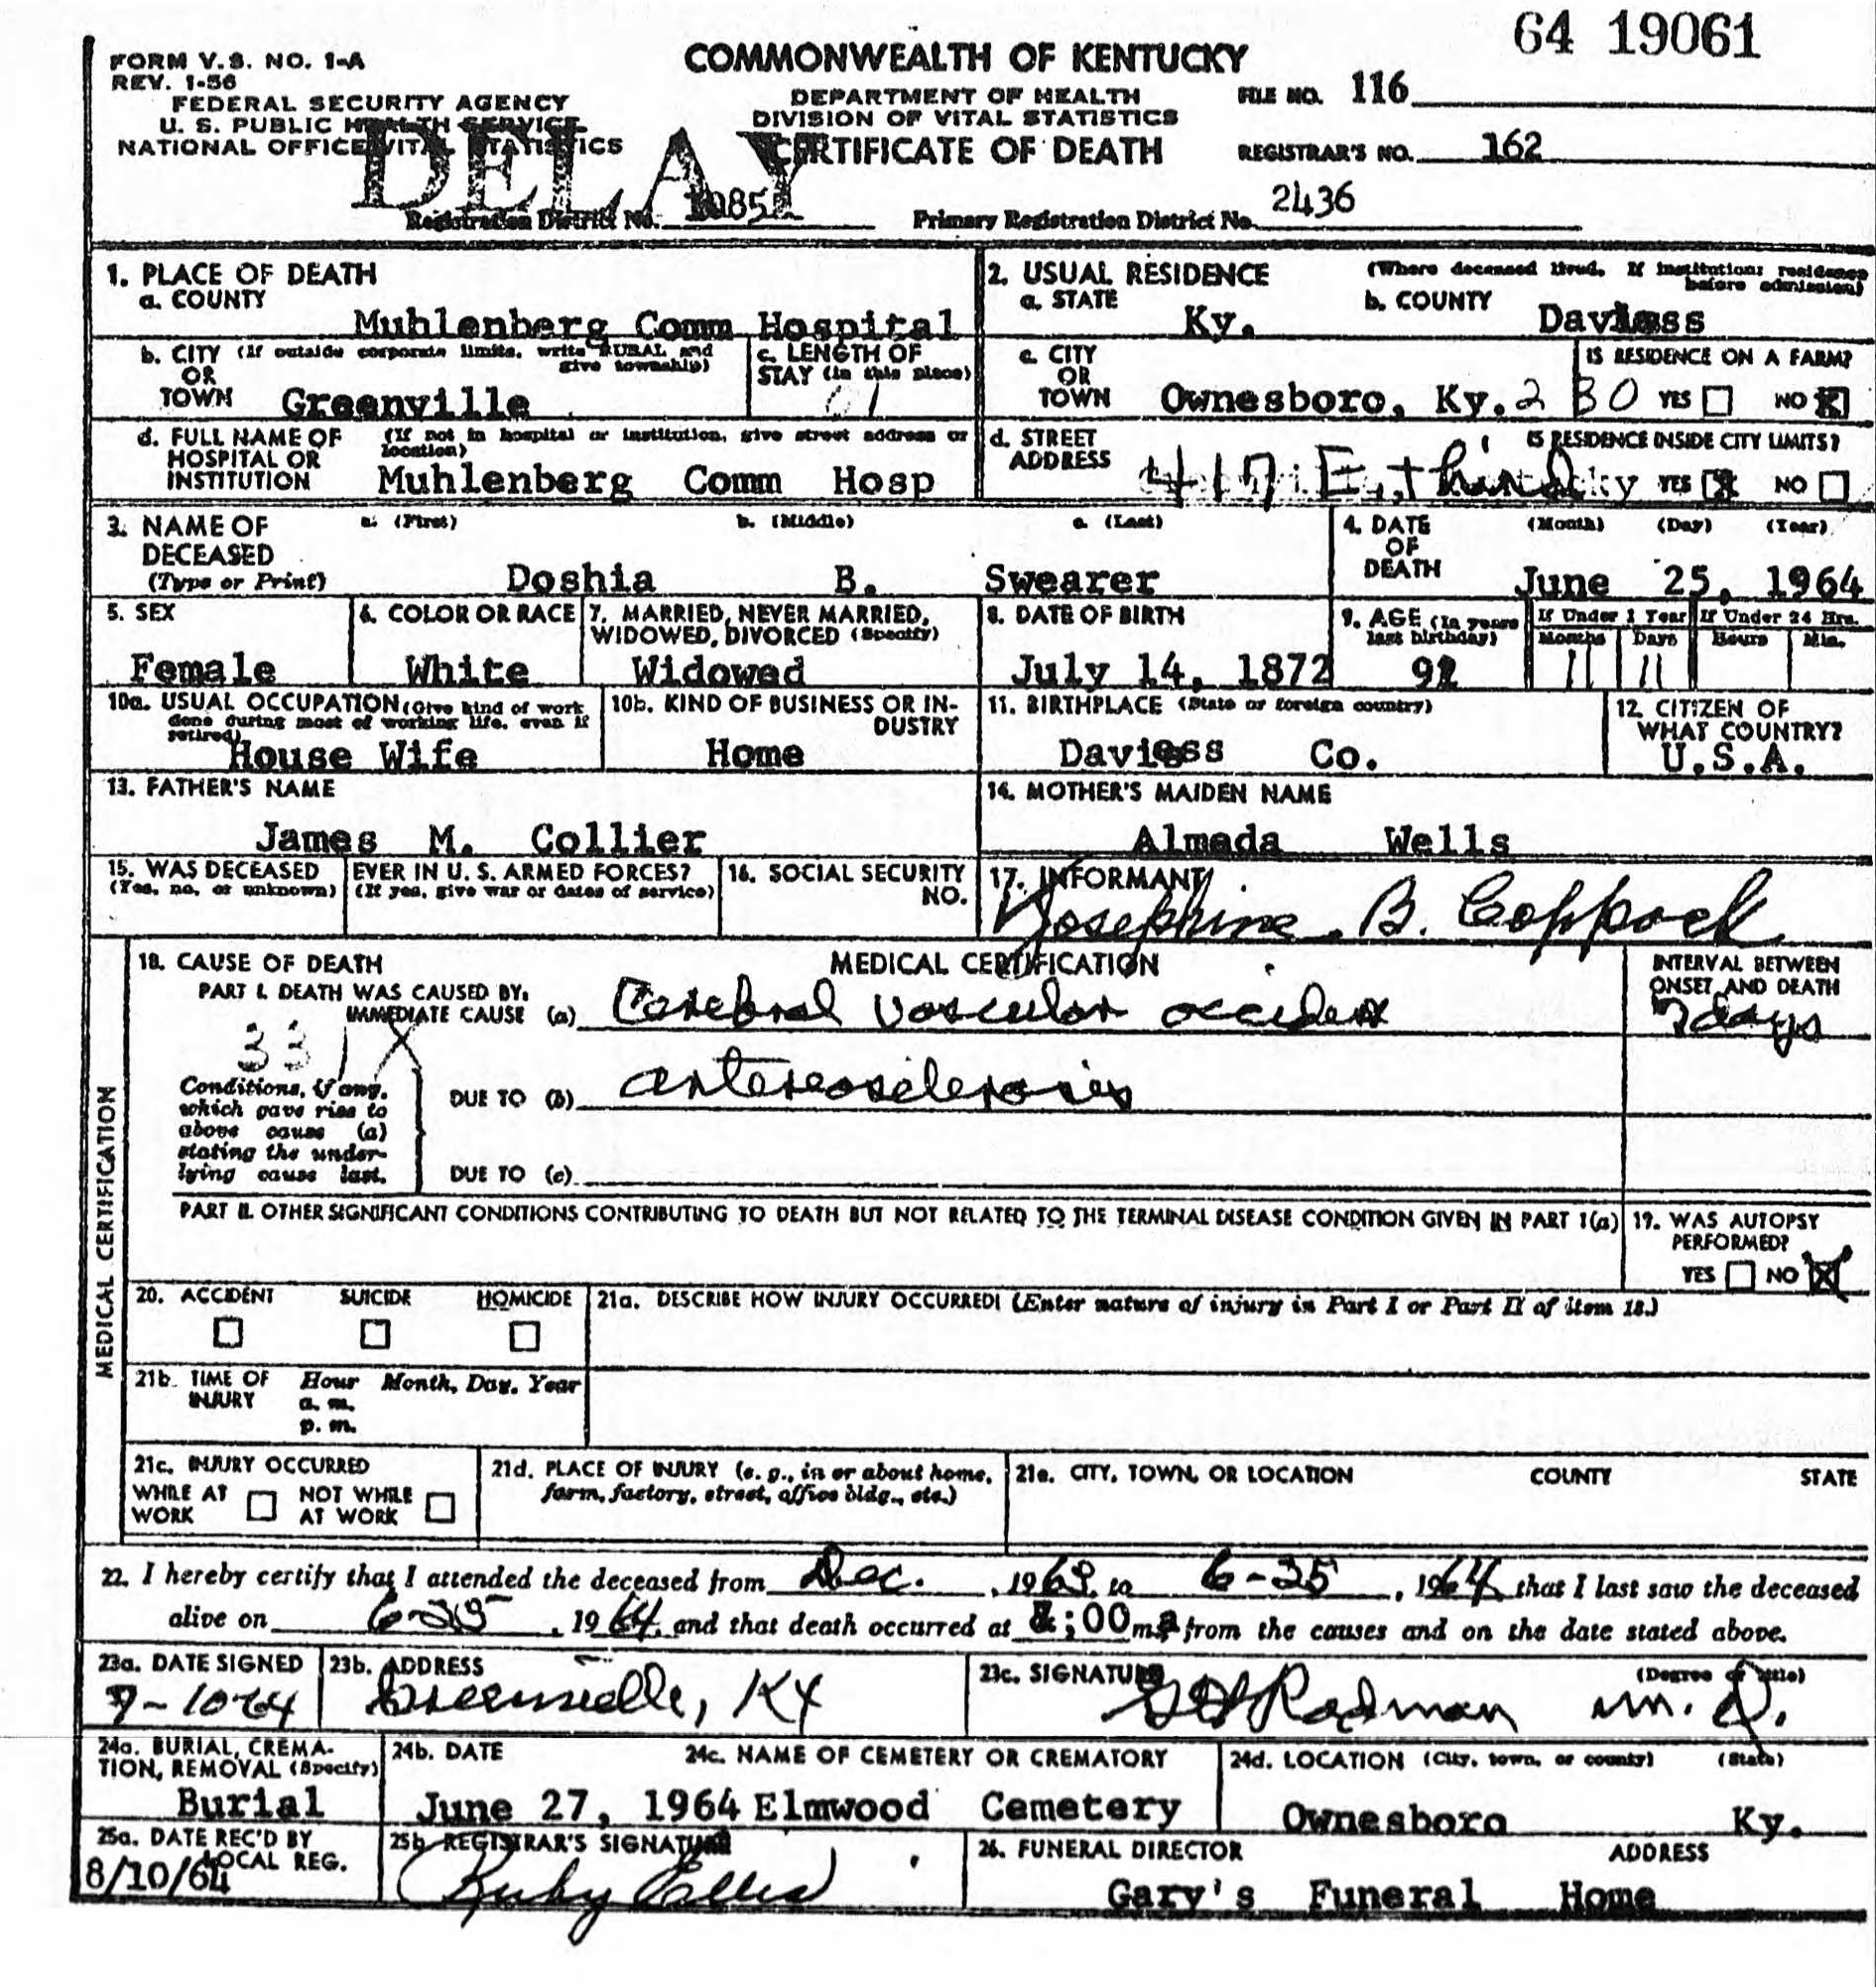 64 19061
FORM V.S. NO. 1-A
REV. 1-56
FEDERAL SECURITY AGENCY
U. S. PUBLIC HEALTH SERVICE
NATIONAL OFFICE VITAL STATISTICS
COMMONWEALTH OF KENTUCKY
DEPARTMENT OF HEALTH
DIVISION OF VITAL STATISTICS
CERTIFICATE OF DEATH
FILE NO. 116
REGISTRAR'S NO. 162
DELAY
Registration District No. 1085
Primary Registration District No. 2436
1. PLACE OF DEATH
a. COUNTY
Muhlenberg Comm Hospital
2. USUAL RESIDENCE (Where deceased lived. If institution: residence before admission)
a. STATE Ky. b. COUNTY Daviess
b. CITY (If outside corporate limits, write RURAL and give township)
OR
TOWN Greenville
c. LENGTH OF STAY (in this place)
c. CITY
OR
TOWN Ownesboro, Ky. 2 30
IS RESIDENCE ON A FARM?
YES NO X
d. FULL NAME OF HOSPITAL OR INSTITUTION (If not in hospital or institution, give street address or location)
Muhlenberg Comm Hosp
d. STREET ADDRESS 417 E. third
IS RESIDENCE INSIDE CITY LIMITS?
YES X NO
3. NAME OF DECEASED (Type or Print)
a. (First) b. (Middle) c. (Last)
Doshia B. Swearer
4. DATE OF DEATH (Month) (Day) (Year)
June 25, 1964
5. SEX
Female
6. COLOR OR RACE
White
7. MARRIED, NEVER MARRIED, WIDOWED, DIVORCED (Specify)
Widowed
8. DATE OF BIRTH
July 14, 1872
9. AGE (In years last birthday)
If Under 1 Year If Under 24 Hrs.
Months Days Hours Min.
11 11
10a. USUAL OCCUPATION (Give kind of work done during most of working life, even if retired)
House Wife
10b. KIND OF BUSINESS OR INDUSTRY
Home
11. BIRTHPLACE (State or foreign country)
Daviess Co.
12. CITIZEN OF WHAT COUNTRY?
U.S.A.
13. FATHER'S NAME
James M. Collier
14. MOTHER'S MAIDEN NAME
Almada Wells
15. WAS DECEASED EVER IN U. S. ARMED FORCES?
(Yes, no, or unknown) (If yes, give war or dates of service)
16. SOCIAL SECURITY NO.
17. INFORMANT
Josephine B. Coppock
MEDICAL CERTIFICATION
18. CAUSE OF DEATH
MEDICAL CERTIFICATION
INTERVAL BETWEEN ONSET AND DEATH
PART I. DEATH WAS CAUSED BY:
IMMEDIATE CAUSE (a) Cerebral vascular accident
7 days
331 X
Conditions, if any, which gave rise to above cause (a) stating the underlying cause last.
DUE TO (b) arterioosclerosis
DUE TO (c)
PART II. OTHER SIGNIFICANT CONDITIONS CONTRIBUTING TO DEATH BUT NOT RELATED TO THE TERMINAL DISEASE CONDITION GIVEN IN PART I(a)
19. WAS AUTOPSY PERFORMED?
YES NO X
20. ACCIDENT SUICIDE HOMICIDE
21a. DESCRIBE HOW INJURY OCCURRED! (Enter nature of injury in Part I or Part II of item 18.)
21b. TIME OF INJURY Hour Month, Day, Year
a. m.
p. m.
21c. INJURY OCCURRED
WHILE AT WORK NOT WHILE AT WORK
21d. PLACE OF INJURY (e. g., in or about home, farm, factory, street, office bldg., etc.)
21e. CITY, TOWN, OR LOCATION COUNTY STATE
22. I hereby certify that I attended the deceased from Dec. , 19 to 6-25 , 1964 that I last saw the deceased
alive on 6-25 , 1964, and that death occurred at :00 m, from the causes and on the date stated above.
23a. DATE SIGNED
23b. ADDRESS
Greenville, Ky
23c. SIGNATURE (Degree or title)
Rodman M. D.
24a. BURIAL, CREMATION, REMOVAL (Specify)
Burial
24b. DATE
June 27, 1964
24c. NAME OF CEMETERY OR CREMATORY
Elmwood Cemetery
24d. LOCATION (City, town, or county) (State)
Ownesboro Ky.
25a. DATE REC'D BY LOCAL REG.
8/10/64
25b. REGISTRAR'S SIGNATURE
Ruby Ellis
26. FUNERAL DIRECTOR ADDRESS
Gary's Funeral Home